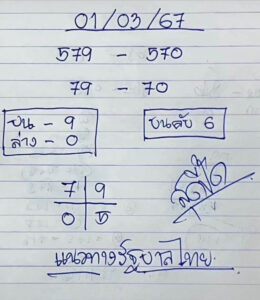 01/03/67
579 - 570
79 - 70
บน - 9
ล่าง - 0
บนลับ 6
7 9
0 5
แนวทางรัฐบาลไทย